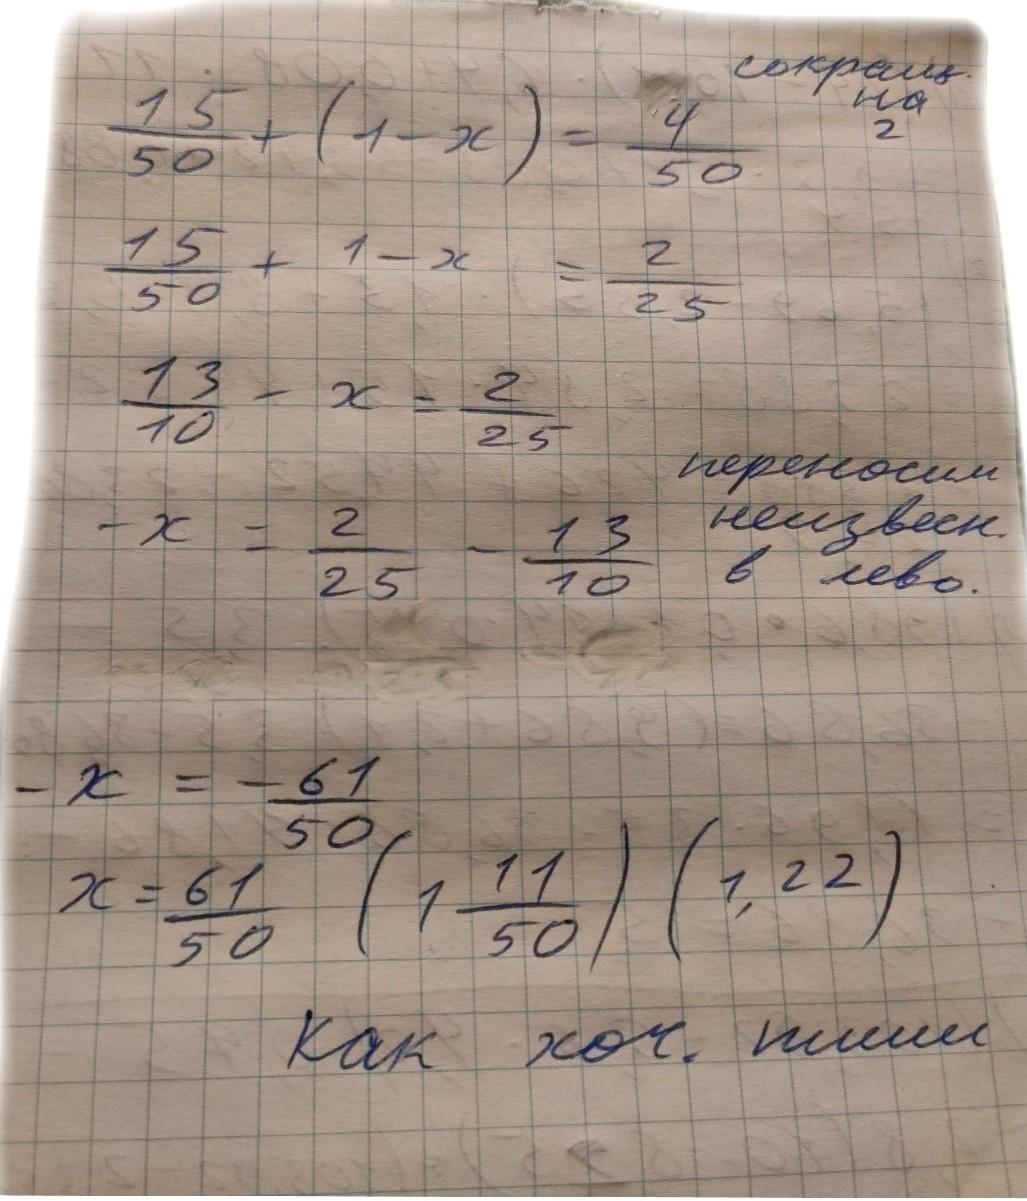 15/50 + (1 - x) = 4/50
сокращ.
на
2
15/50 + 1 - x = 2/25
13/10 - x = 2/25
-x = 2/25 - 13/10
переносим
неизвесн.
в лево.
-x = -61/50
x = 61/50 (1 11/50) (1,22)
Как хоч. пиши